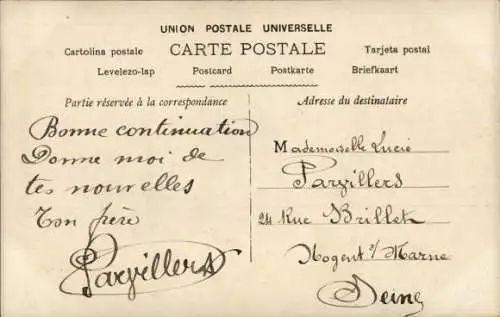 UNION POSTALE UNIVERSELLE
CARTE POSTALE
Cartolina postale
Tarjeta postal
Levelezo-lap
Postcard
Postkarte
Briefkaart
Partie réservée à la correspondance
Bonne continuation
Donne moi de
tes nouvelles
Ton frère
Parvillers
Adresse du destinataire
Mademoiselle Lucie
Parvillers
24 Rue Brillet
Nogent s/ Marne
Seine